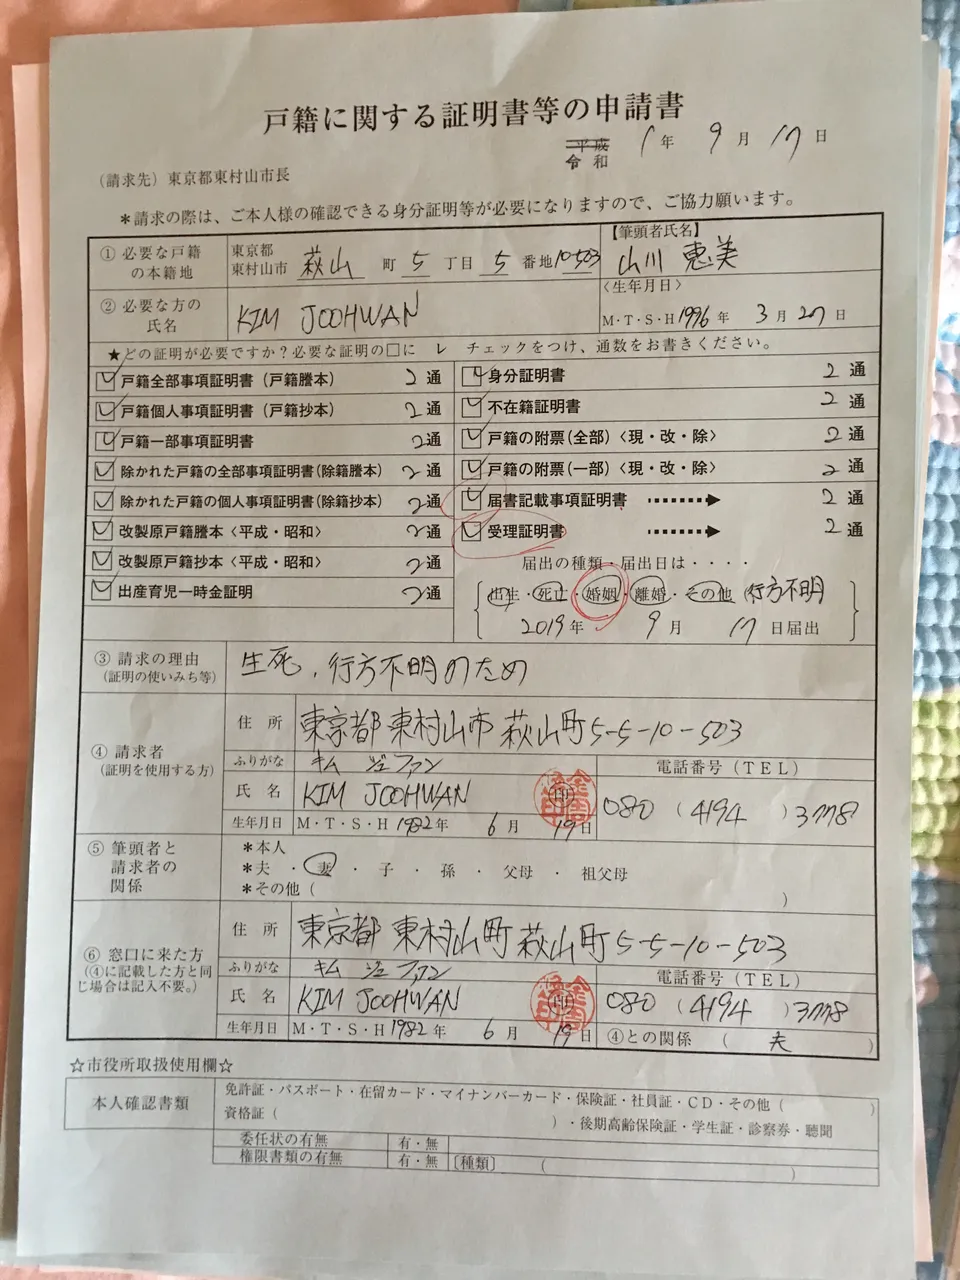 戸籍に関する証明書等の申請書
平成
令和 1年 9月 17日
(請求先) 東京都東村山市長
*請求の際は、ご本人様の確認できる身分証明等が必要になりますので、ご協力願います。
① 必要な戸籍の本籍地 東京都東村山市 萩山 町 5 丁目 5 番地 10-503
【筆頭者氏名】
山川 恵美
② 必要な方の氏名 KIM JOOHWAN
〈生年月日〉
M・T・S・H 1996年 3月 27日
★どの証明が必要ですか?必要な証明の□に レ チェックをつけ、通数をお書きください。
戸籍全部事項証明書(戸籍謄本) 2通
身分証明書 2通
戸籍個人事項証明書(戸籍抄本) 2通
不在籍証明書 2通
戸籍一部事項証明書 2通
戸籍の附票(全部)〈現・改・除〉 2通
除かれた戸籍の全部事項証明書(除籍謄本) 2通
戸籍の附票(一部)〈現・改・除〉 2通
除かれた戸籍の個人事項証明書(除籍抄本) 2通
届書記載事項証明書 2通
改製原戸籍謄本〈平成・昭和〉 2通
受理証明書 2通
改製原戸籍抄本〈平成・昭和〉 2通
届出の種類・届出日は・・・・
出産育児一時金証明 2通
出生・死亡・婚姻・離婚・その他 行方不明
2019年 9月 17日届出
③ 請求の理由 生死、行方不明のため
(証明の使いみち等)
④ 請求者
(証明を使用する方)
住所 東京都 東村山市 萩山町 5-5-10-503
ふりがな キム ジュファン
電話番号(TEL)
氏名 KIM JOOHWAN 印
080 (4194) 3778
生年月日 M・T・S・H 1982年 6月 19日
⑤ 筆頭者と請求者の関係
*本人
*夫 ・ 妻 ・ 子 ・ 孫 ・ 父母 ・ 祖父母
*その他( )
⑥ 窓口に来た方
(④に記載した方と同じ場合は記入不要。)
住所 東京都 東村山町 萩山町 5-5-10-503
ふりがな キム ジュファン
電話番号(TEL)
氏名 KIM JOOHWAN 印
080 (4194) 3778
生年月日 M・T・S・H 1982年 6月 19日
④との関係 ( 夫 )
☆市役所取扱使用欄☆
本人確認書類
免許証・パスポート・在留カード・マイナンバーカード・保険証・社員証・CD・その他( )
資格証( )・後期高齢保険証・学生証・診察券・聴聞
委任状の有無 有・無
権限書類の有無 有・無 〔種類〕 ( )